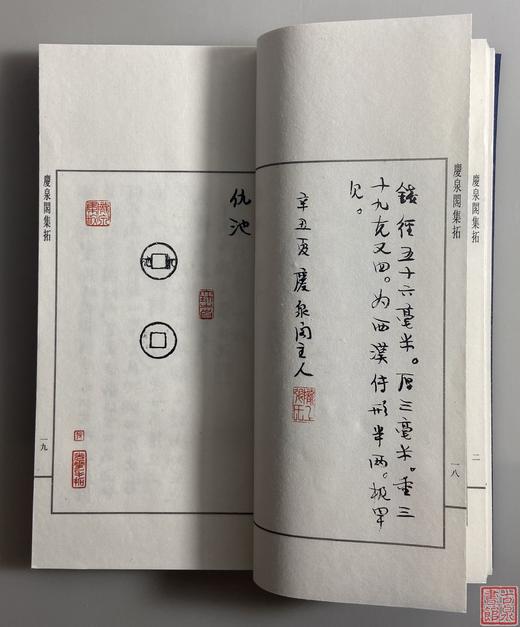 慶泉閣集拓
二
慶泉閣集拓
一八
錢徑五十六毫米。厚三毫米。重三
十九克又四。为西漢傳形半两。极罕
见。
辛丑夏慶泉阁主人
仇池
慶泉閣集拓
一九